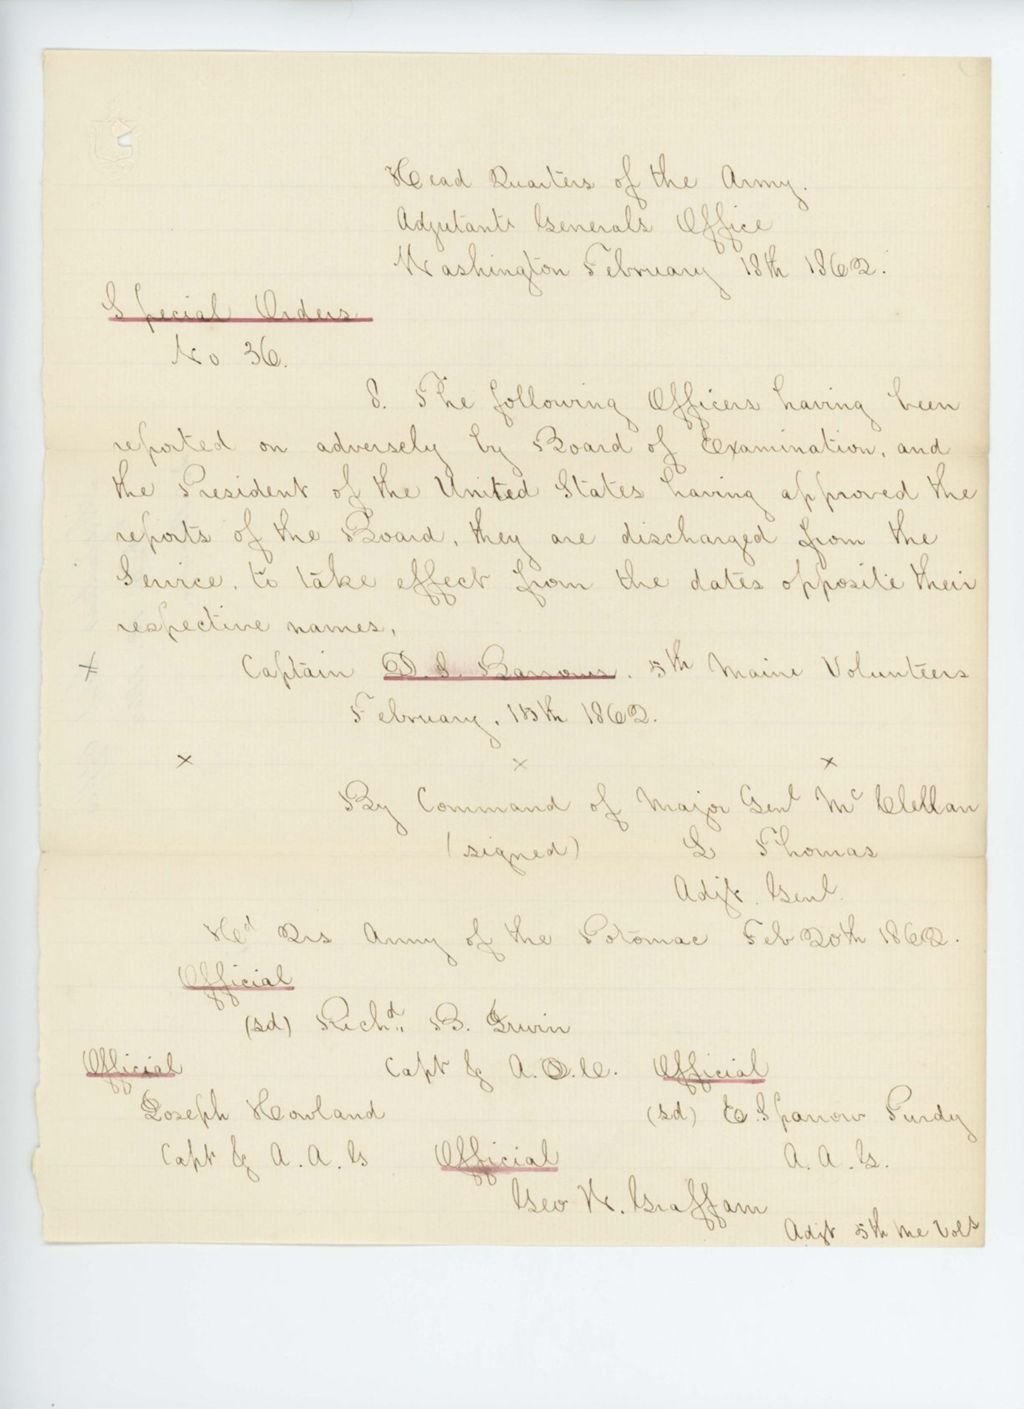 Head Quarters of the Army.
Adjutant Generals Office
Washington February 18th 1862.
Special Orders
No 36.
8. The following Officers having been
reported on adversely by Board of Examination, and
the President of the United States having approved the
reports of the Board, they are discharged from the
Service, to take effect from the dates opposite their
respective names,
x Captain Barrows. 5th Maine Volunteers
February, 15th 1862.
x x x
By Command of Major Genl McClellan
(signed) L Thomas
Adjt. Genl.
Hd Qrs Army of the Potomac Feb 20th 1862.
Official
(sd) Richd., B. Irwin
Official Capt & A.D.C. Official
Joseph Howland (sd) E. Sparrow Purdy
Capt & A.A.G Official A.A.G.
Geo W. Graffam
Adjt 5th Me Vols